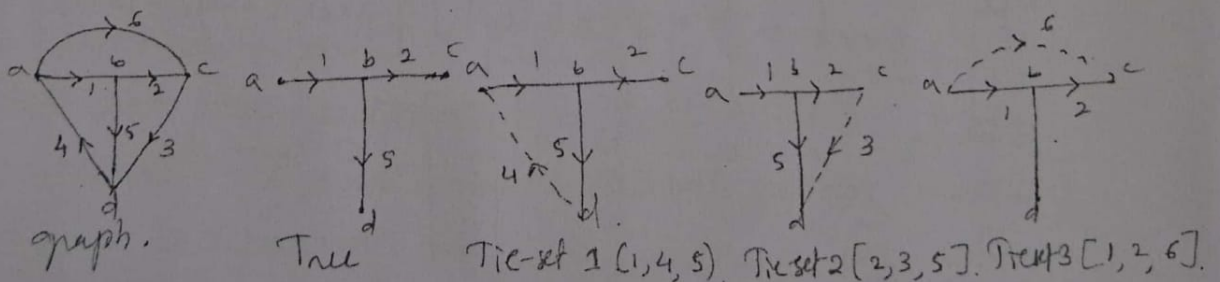 6
a b c
1 2
4 5 3
d
graph.
a 1 b 2 c
5
d
Tree
a 1 b 2 c
5
4
d
Tie-set 1 (1,4,5)
a 1 b 2 c
5 3
d
Tieset 2 [2,3,5].
6
a b c
1 2
d
Tieset 3 [1,2,6].